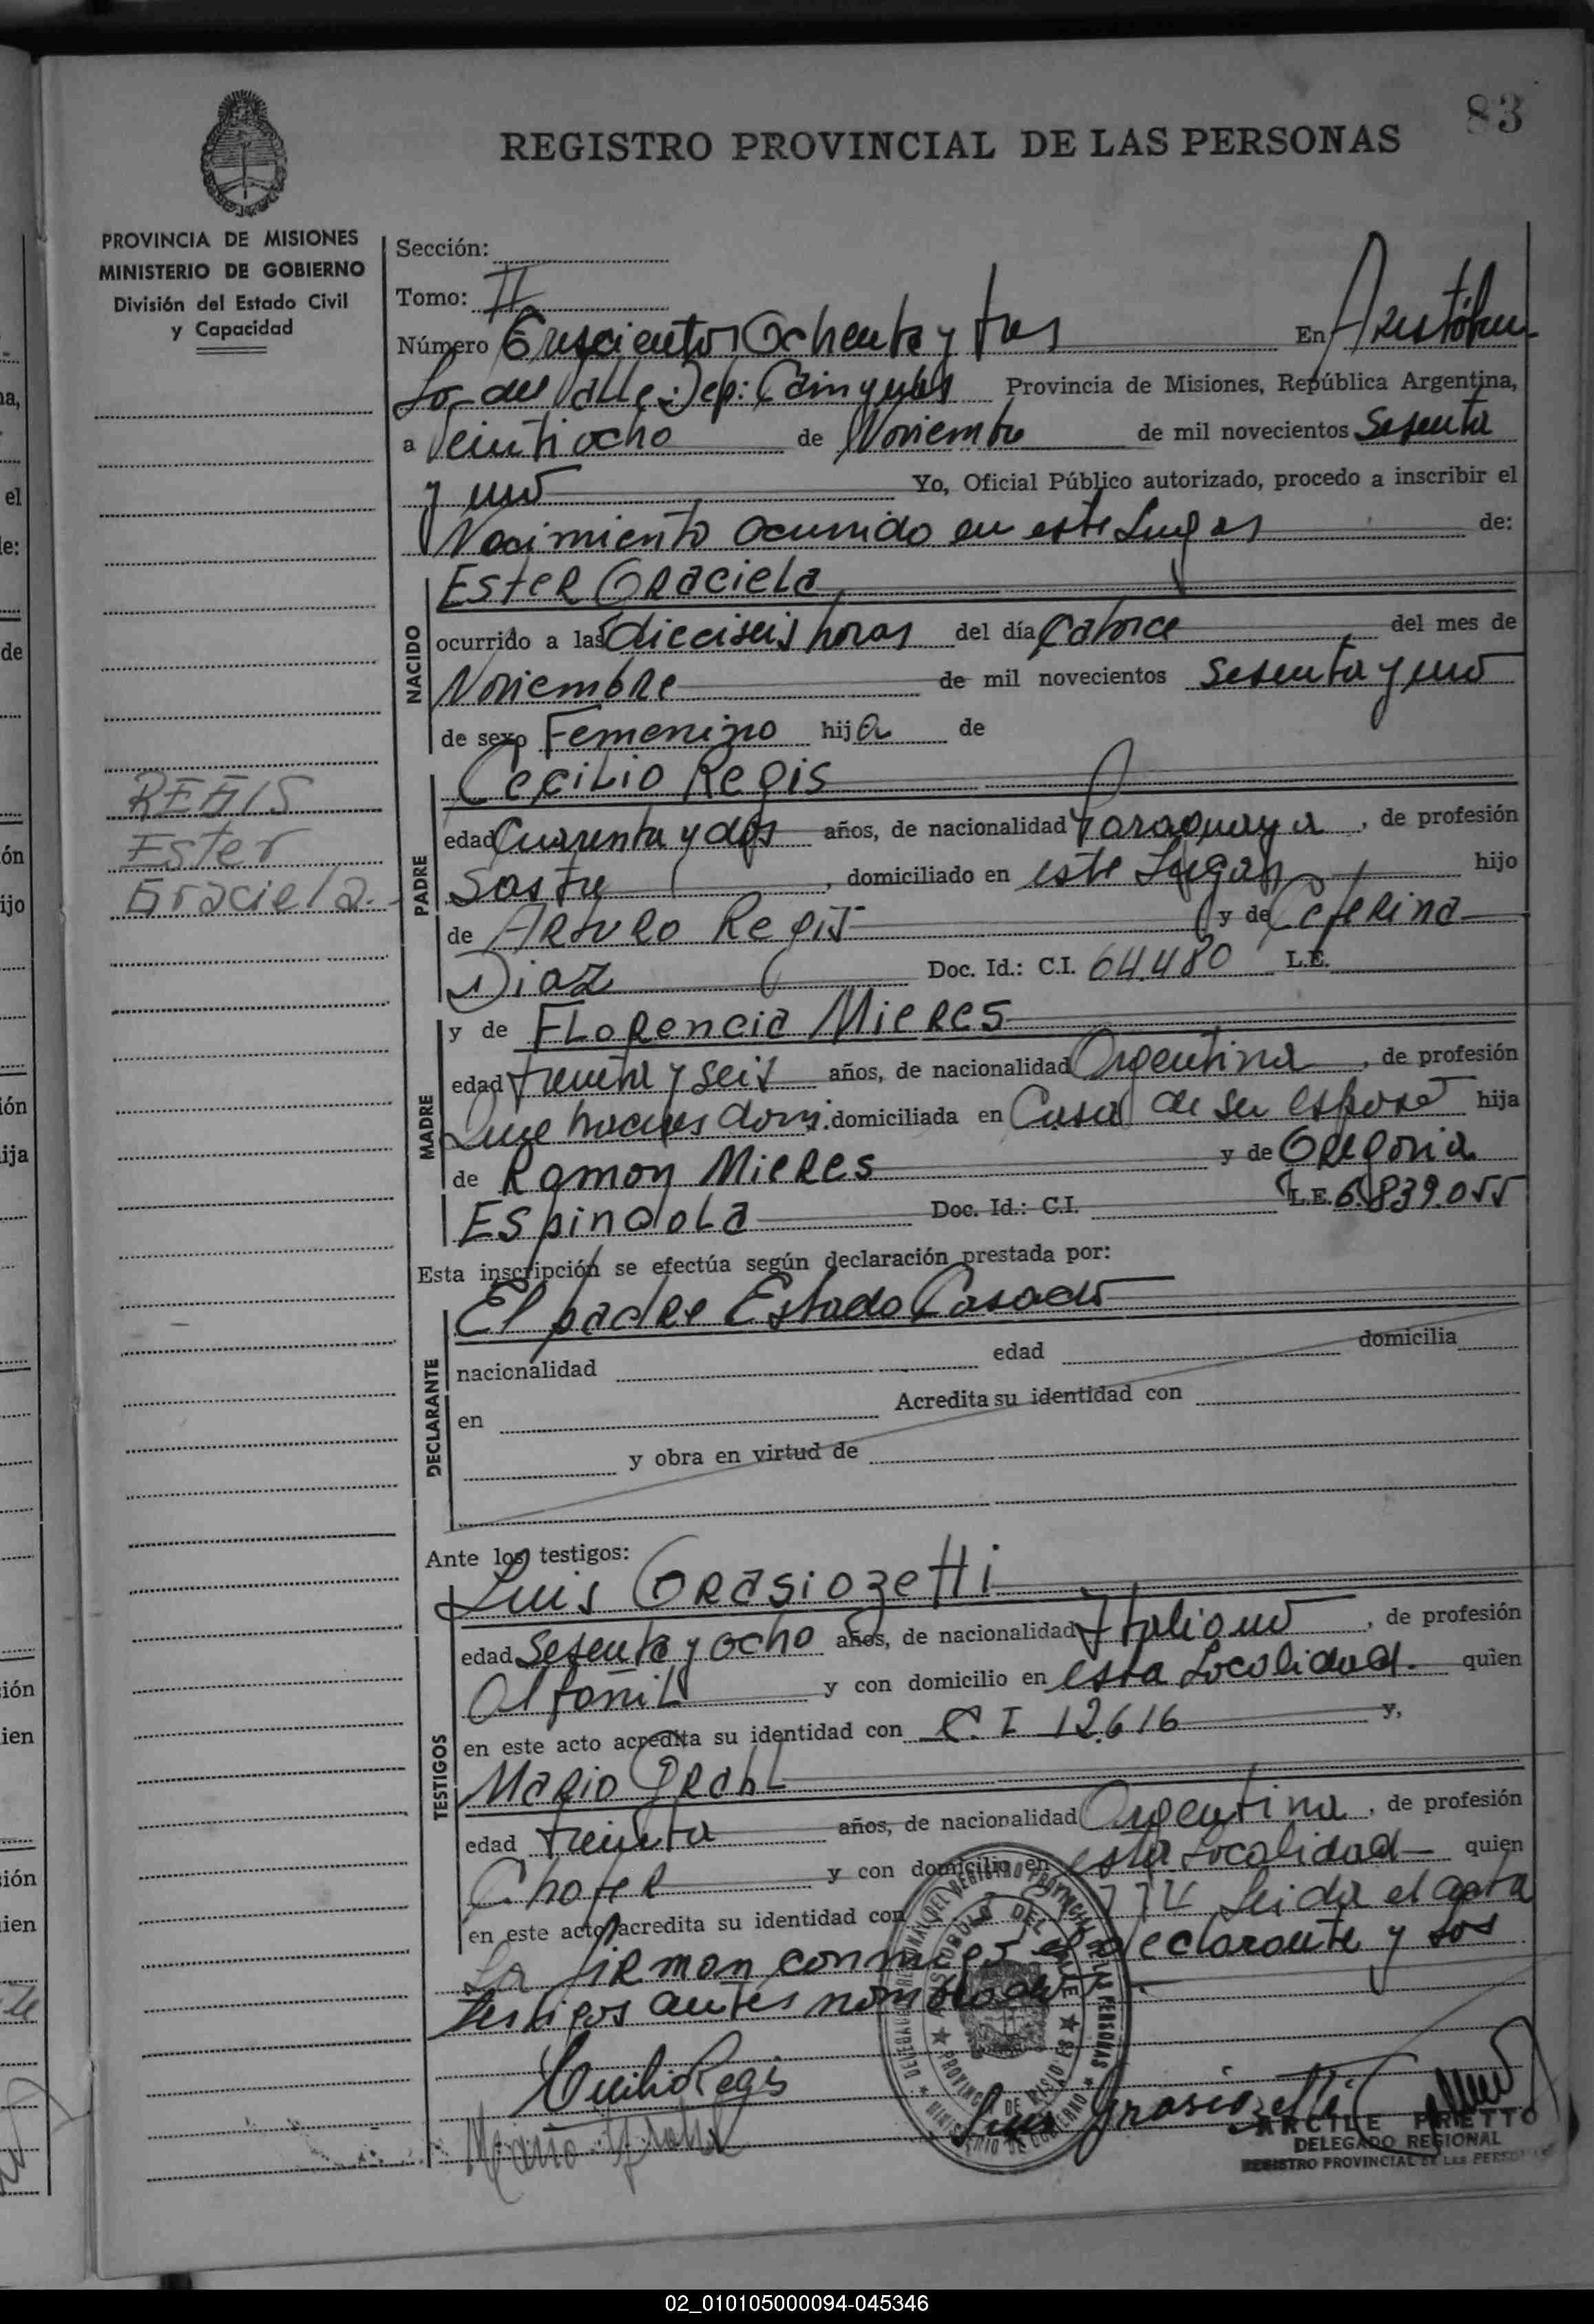 83
REGISTRO PROVINCIAL DE LAS PERSONAS
PROVINCIA DE MISIONES
MINISTERIO DE GOBIERNO
División del Estado Civil
y Capacidad
Sección:
Tomo: II
Número Trescientos Ochenta y tres En Aristóbu-
lo del Valle. Dep: Cainguas Provincia de Misiones, República Argentina,
a Veintiocho de Noviembre de mil novecientos Sesenta
y uno Yo, Oficial Público autorizado, procedo a inscribir el
Nacimiento ocurrido en este Lugar de:
NACIDO
Ester Graciela
ocurrido a las dieciseis horas del día Catorce del mes de
Noviembre de mil novecientos Sesenta y uno
de sexo Femenino hija de
REGIS
Ester
Graciela.
PADRE
Cecilio Regis
edad Cuarenta y dos años, de nacionalidad Paraguaya, de profesión
Sastre, domiciliado en este Lugar hijo
de Arturo Regis y de Ceferina
Diaz Doc. Id.: C.I. 64.480 L.E.
MADRE
y de Florencia Mieres
edad treinta y seis años, de nacionalidad Argentina, de profesión
Que haceres dom. domiciliada en Casa de su esposo hija
de Ramon Mieres y de Gregoria
Espindola Doc. Id.: C.I. L.E. 6.839.055
Esta inscripción se efectúa según declaración prestada por:
DECLARANTE
El padre Estado Casado
nacionalidad edad domicilia
en Acredita su identidad con
y obra en virtud de
Ante los testigos:
TESTIGOS
Luis Grasiozetti
edad Sesenta y ocho años, de nacionalidad Italiano, de profesión
Albañil y con domicilio en esta Localidad. quien
en este acto acredita su identidad con C. I 12.616 y,
Mario Grahl
edad treinta años, de nacionalidad Argentina, de profesión
Chofer y con domicilio en esta Localidad quien
en este acto acredita su identidad con Leida el acta
La firman conmigo el declarante y los
testigos antes nombrados
Cecilio Regis
Mario Grahl
Luis Grasiozetti
ARCILE PRETTO
DELEGADO REGIONAL
REGISTRO PROVINCIAL DE LAS PERSONAS
02_010105000094-045346